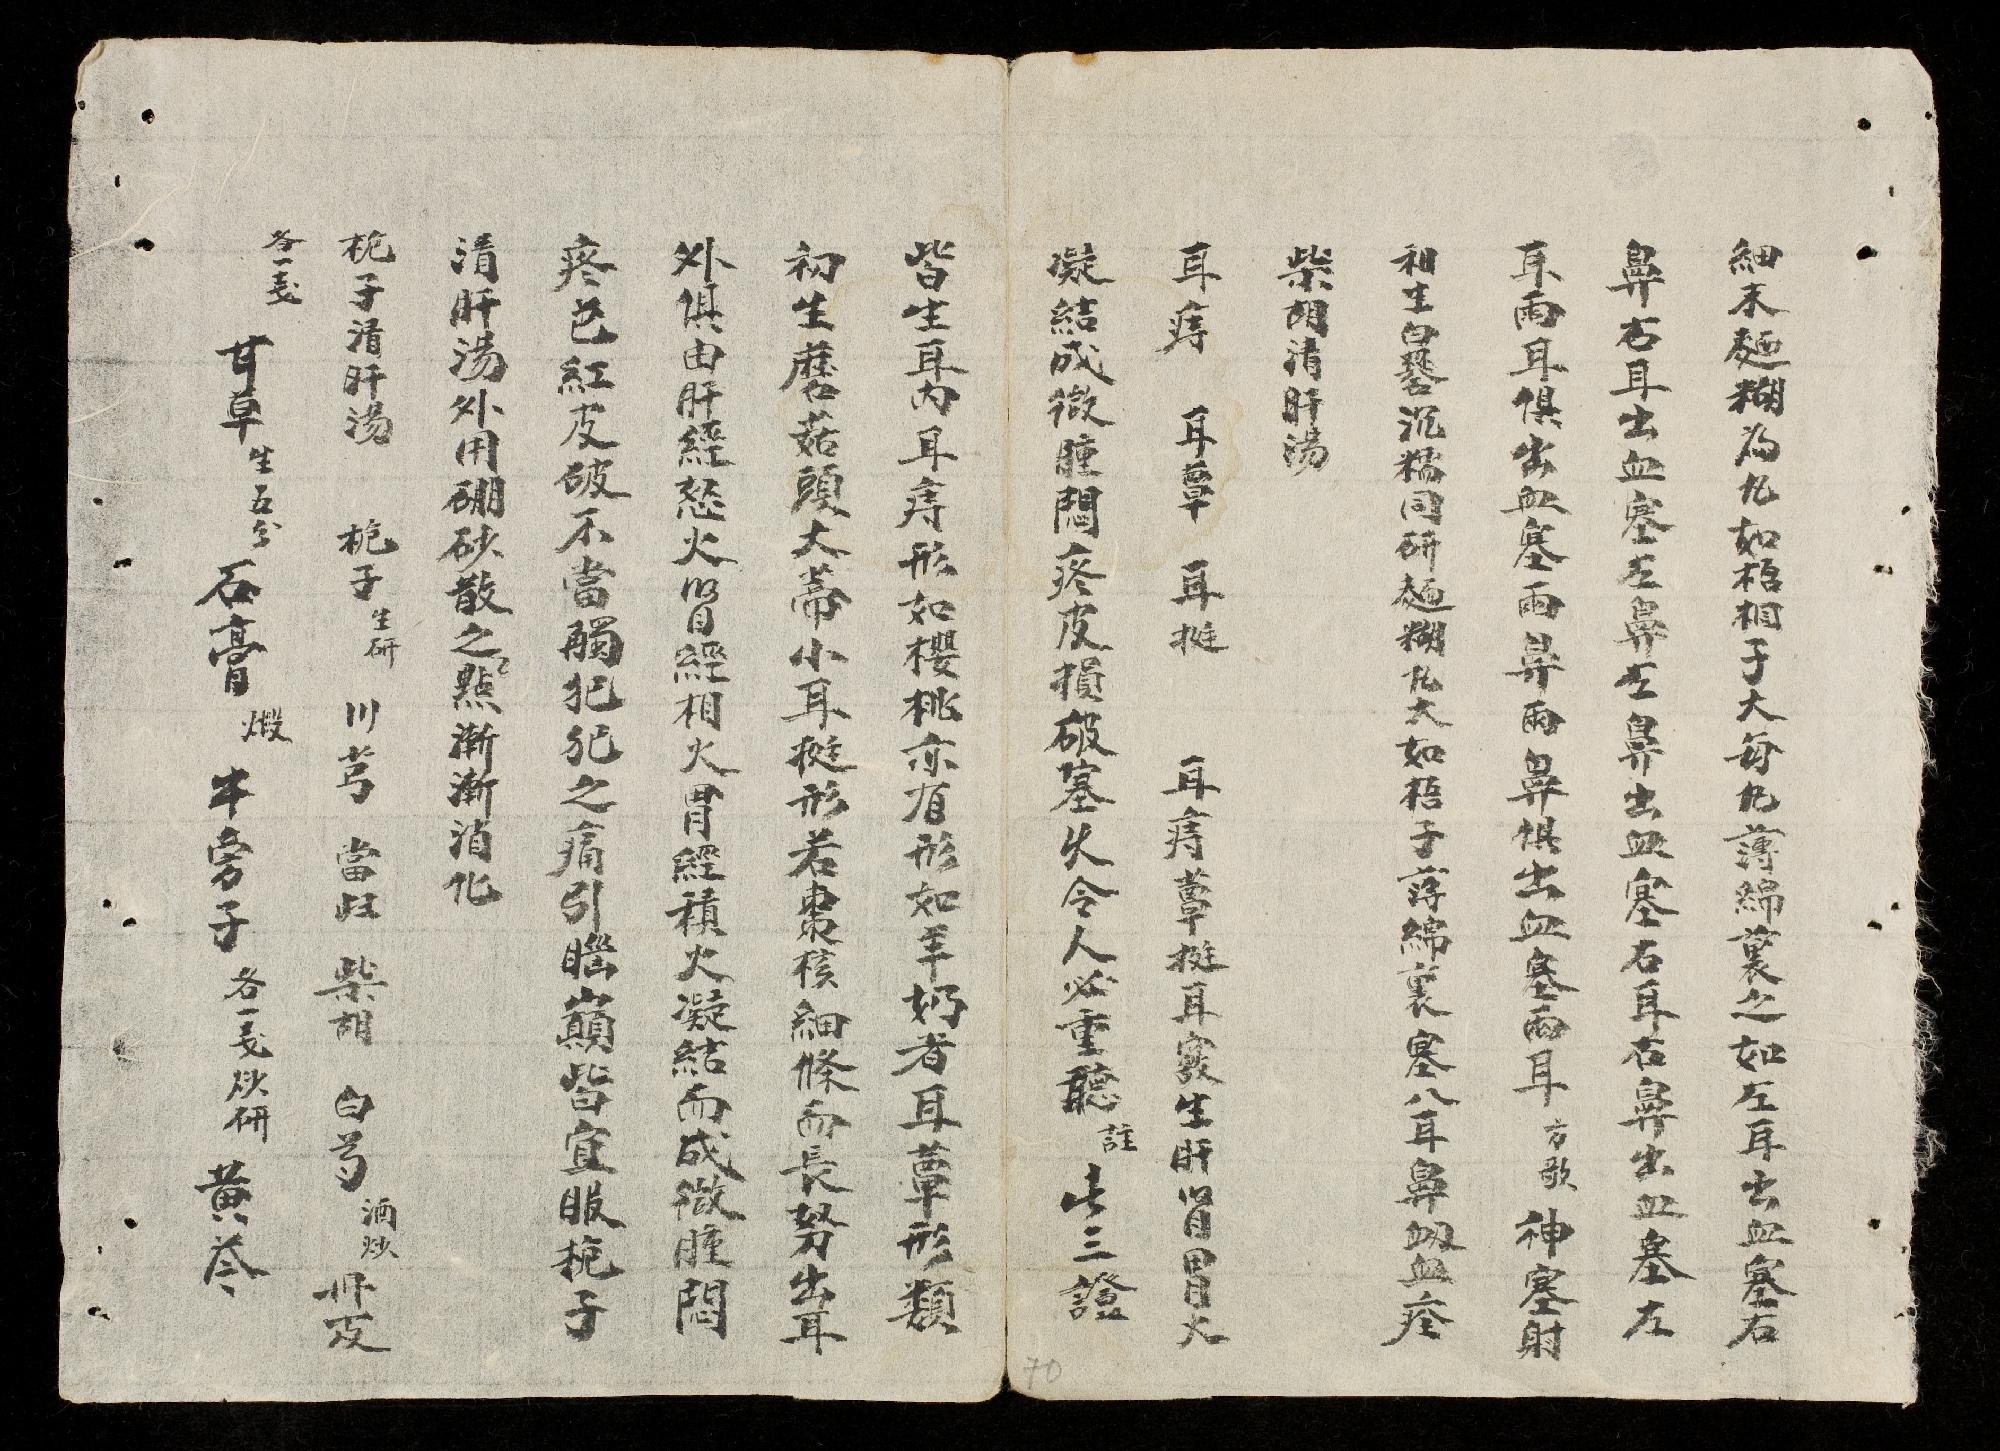 細末麺糊為丸如梧桐子大每丸薄綿裏之如左耳出血塞右
鼻右耳出血塞左鼻左鼻出血塞右耳右鼻出血塞左
耳兩耳俱出血塞兩鼻兩鼻俱出血塞兩耳 方歌 神塞射
和生白礬沉糯同研麺糊丸大如梧子薄綿裏塞入耳鼻衂血痊
柴胡清肝湯
耳痔 耳蕈 耳挺 耳痔蕈挺耳竅生肝腎胃火
凝結成微腫悶疼皮損破塞失令人必重聽 註 此三證
皆生耳內耳痔形如櫻桃亦有形如羊奶者耳蕈形類
初生蘑菇頭大蒂小耳挺形若棗核細條而長努出耳
外俱由肝經怒火腎經相火胃經積火凝結而成微腫悶
疼色紅皮破不當觸犯犯之痛引腦巔皆宜服梔子
清肝湯外用硼砂散之點漸漸消化
梔子清肝湯 梔子 生研 川芎 當歸 柴胡 白芍 酒炒 丹皮
各一戔 甘草 生五分 石膏 煅 牛旁子 各一戔炒研 黃芩
70